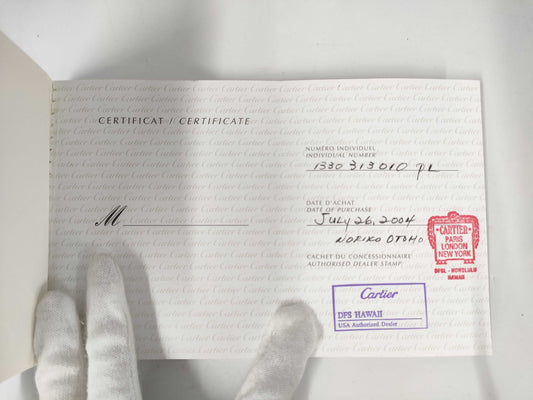 CERTIFICAT / CERTIFICATE
NUMÉRO INDIVIDUEL
INDIVIDUAL NUMBER
1330 313010 PL
M
DATE D'ACHAT
DATE OF PURCHASE
JULY 26, 2004
NORIKO OTOMO
CACHET DU CONCESSIONNAIRE
AUTHORISED DEALER STAMP
CARTIER
PARIS
LONDON
NEW YORK
DFSL - HONOLULU
HAWAII
Cartier
DFS HAWAII
USA Authorized Dealer